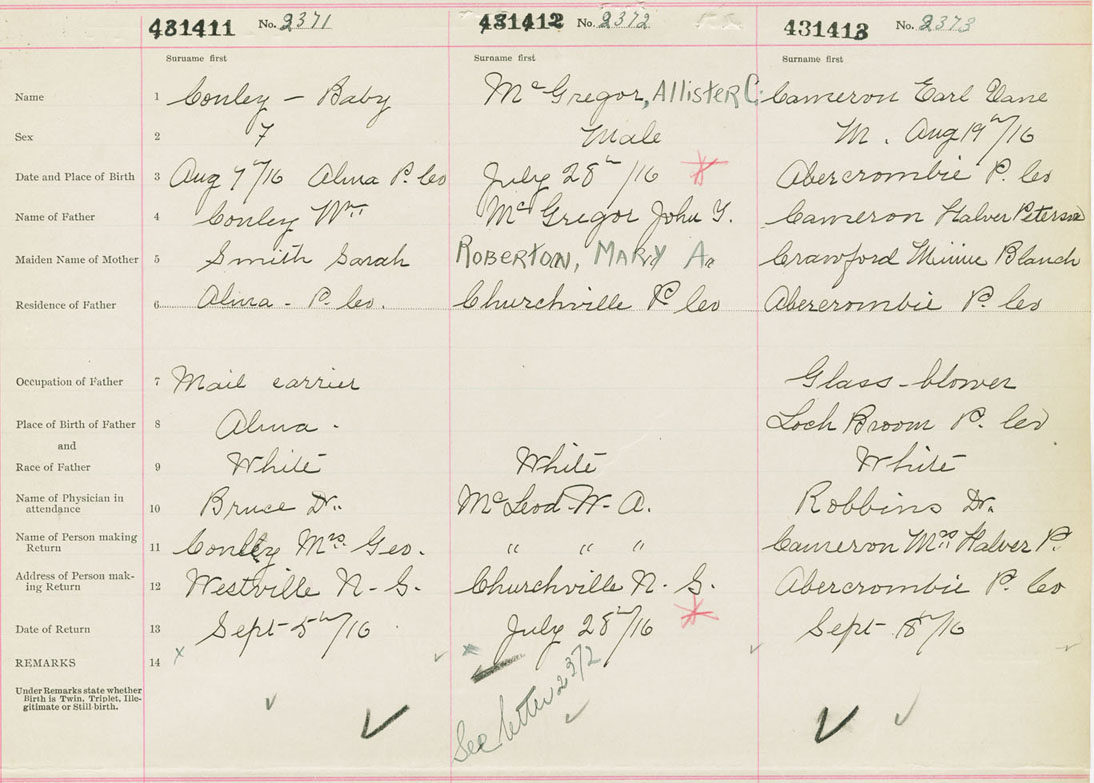 431411 No. 2371 431412 No. 2372 431413 No. 2373
Surname first Surname first Surname first
Name 1 Conley - Baby McGregor, Allister C. Cameron Earl Vane
Sex 2 F Male M. Aug 19th/16
Date and Place of Birth 3 Aug 7th/16 Alma P. Co July 28th/16 Abercrombie P. Co
Name of Father 4 Conley Wm McGregor John Y. Cameron Halver Peterson
Maiden Name of Mother 5 Smith Sarah ROBERTON, MARY A. Crawford Minnie Blanch
Residence of Father 6 Alma - P. Co. Churchville P. Co Abercrombie P. Co
Occupation of Father 7 Mail carrier Glass-blower
Place of Birth of Father 8 Alma. Loch Broom P. Co
and
Race of Father 9 White White White
Name of Physician in
attendance 10 Bruce Dr. McLeod W. A. Robbins Dr.
Name of Person making
Return 11 Conley Mrs. Geo. " " " Cameron Mrs Halver P.
Address of Person mak-
ing Return 12 Westville N-S. Churchville N-S. Abercrombie P. Co
Date of Return 13 Sept 5th/16 July 28th/16 Sept 18th/16
REMARKS 14
Under Remarks state whether
Birth is Twin, Triplet, Ille-
gitimate or Still-birth.
See letter 2372